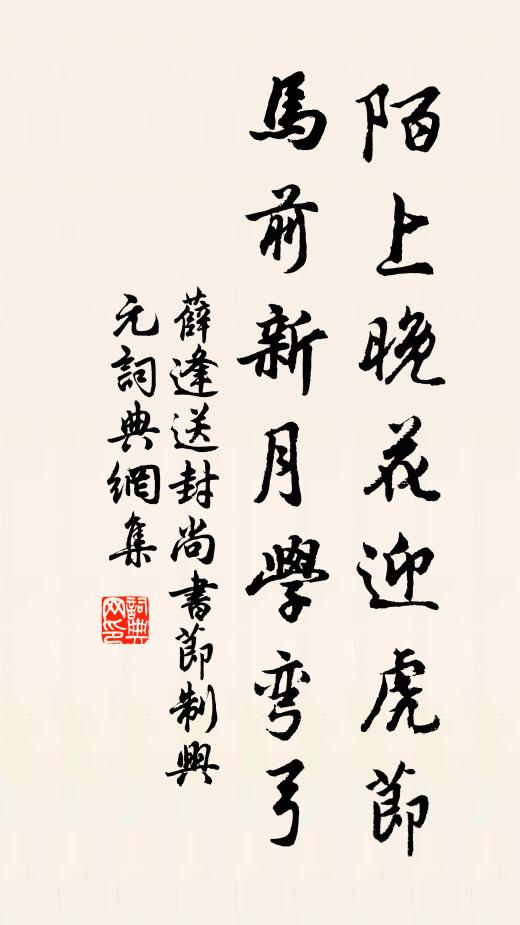 陌上晚花迎虎節
馬前新月學弯弓
薛逢送封尚書節制興
元詞典網集
詞典网印